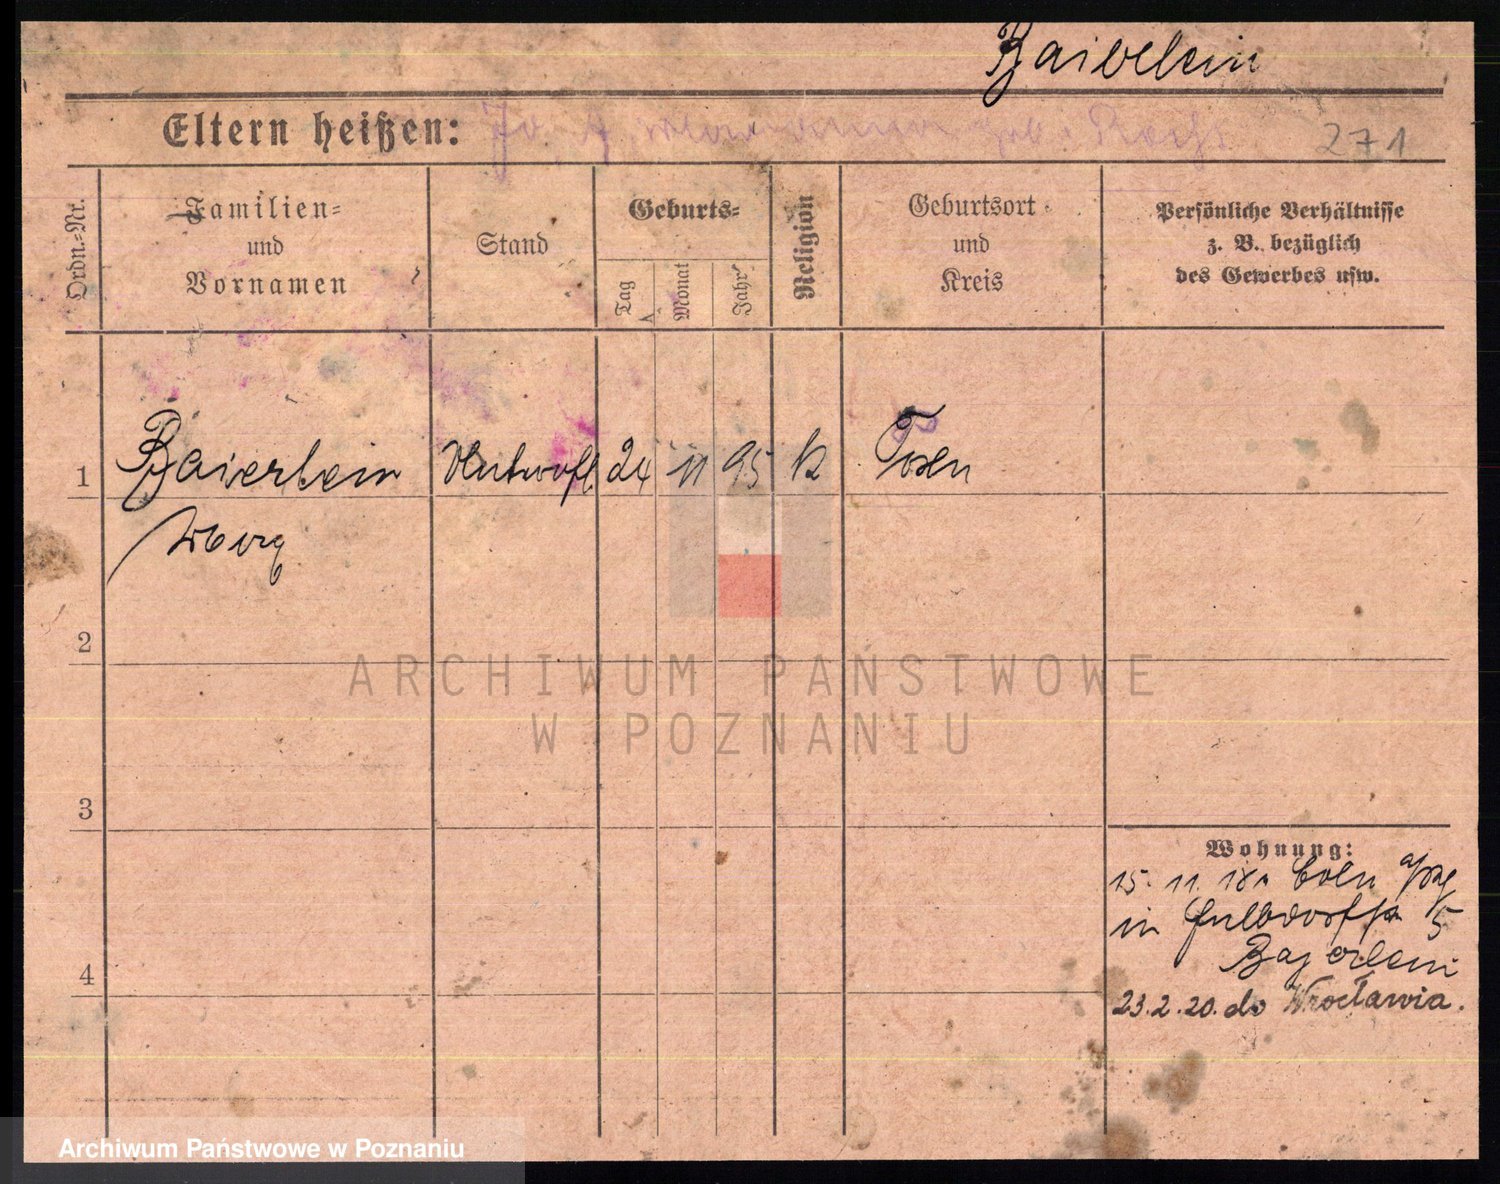 Baierlein
Eltern heißen: geb. 271
Ordn.-Nr.
Familien-
und
Vornamen
Stand
Geburts-
Tag
Monat
Jahr
Religion
Geburtsort
und
Kreis
Persönliche Verhältnisse
z. B. bezüglich
des Gewerbes usw.
1 Baierlein 24 11 95 k Posen
2
3
4
Wohnung:
15. 11. 18 Cöln
in 5
Bajerlein
23.2.20. do Wrocławia.
ARCHIWUM PAŃSTWOWE
W POZNANIU
Archiwum Państwowe w Poznaniu